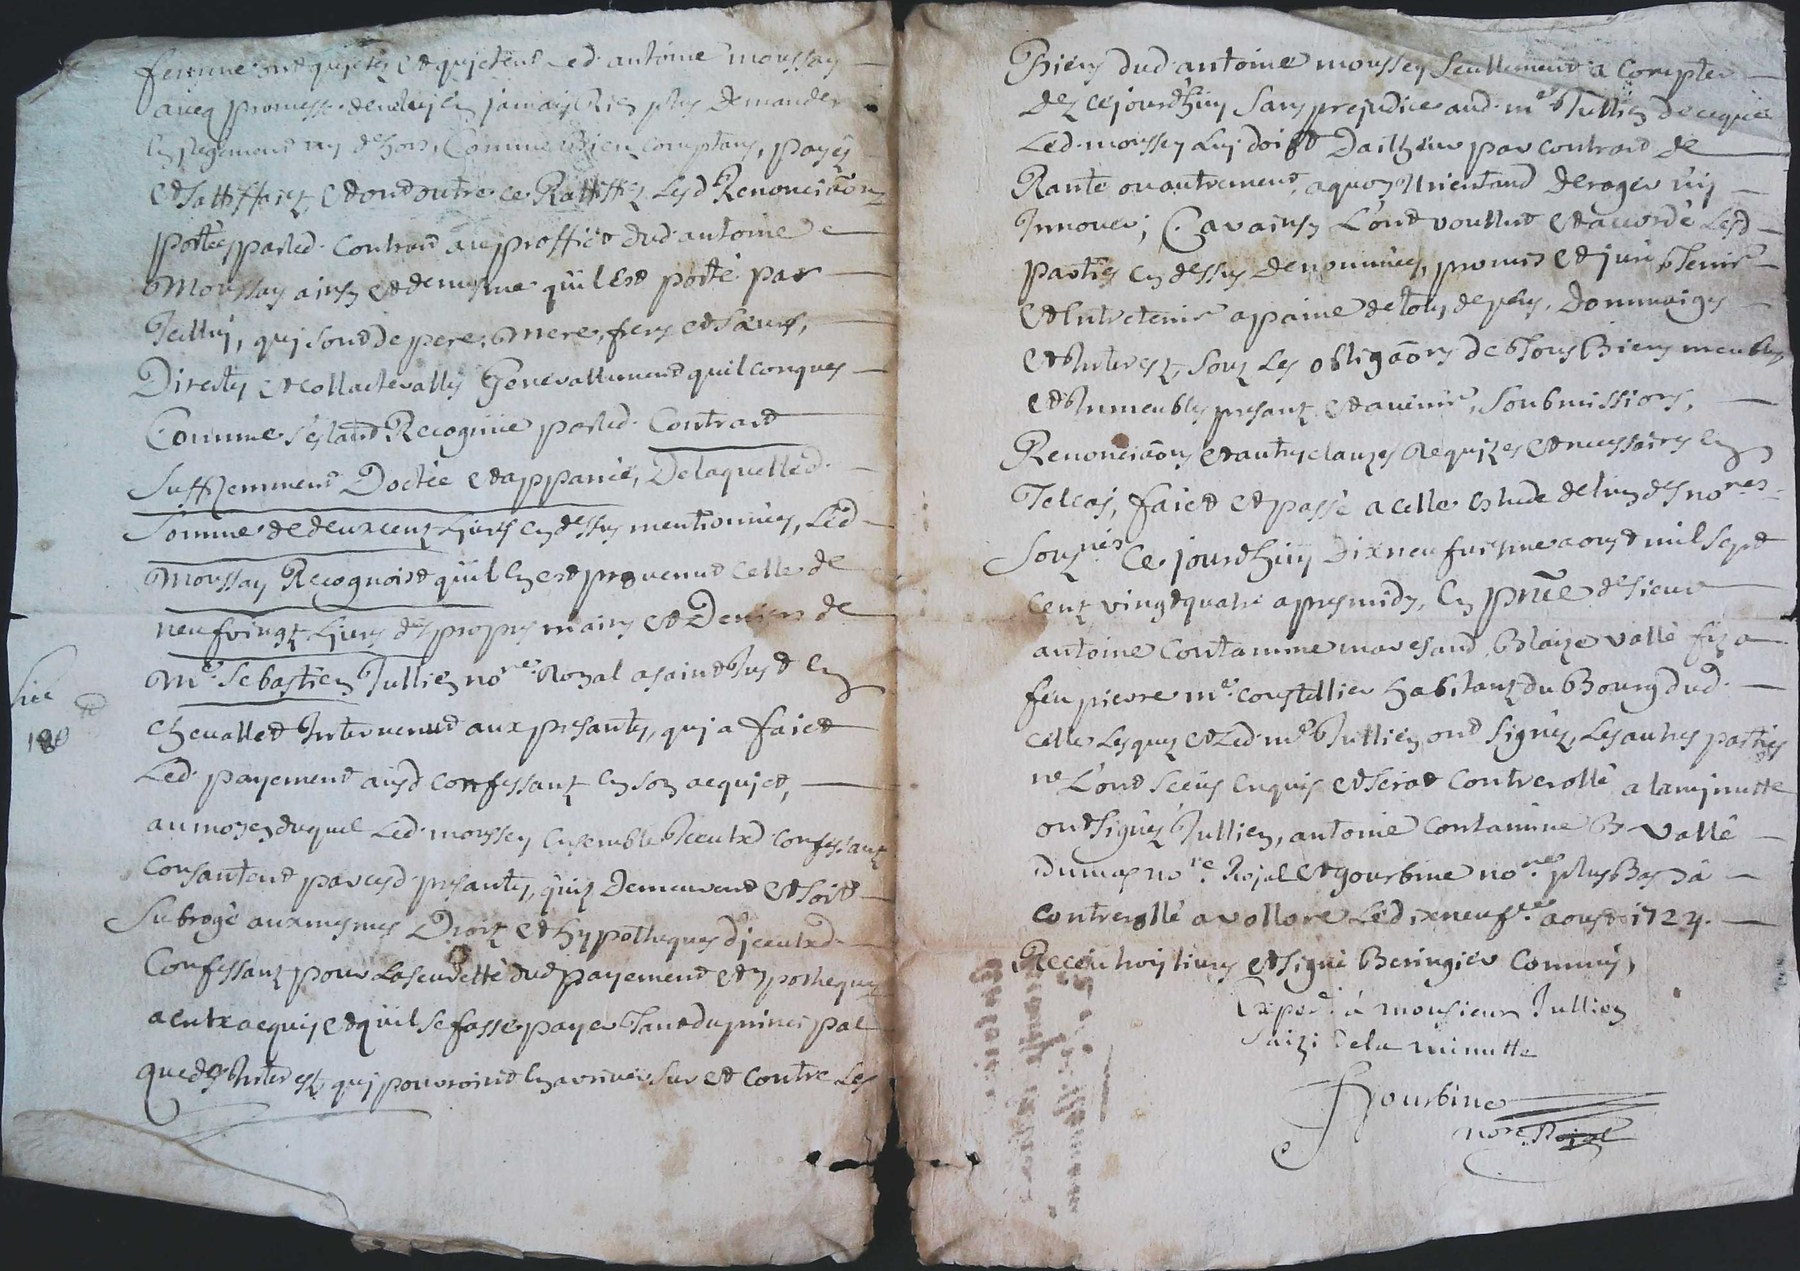 femme ont quictés et quictent led. antoine moussay
avec promesse de ne luy en jamais Rien plus demander
en jugement ny dehors, Comme Bien comptans, payés
et sattiffaict, et ont outre ce Rattiffié Lesd Renonciaōns
portées parled. contract au proffict dud. antoine
Moussay ainsy et de mesme qu'il Est porté par
Icelluy, qui sont de pere, mere, frere et sœurs,
Directes et collacteralles Generallement quilconques
Comme s'estant Recogniue parled. Contract
Suffizemment Doctée et appanée, De laquelle d.
Somme de deux cent livres en dessus mentionnées, Led
Moussay Recognoist qu'il en est provenue celle de
neuf vingt Livres des propres mains et Deniers de
Me. Sebastien Jullien nore. Royal a sainct Just en
chevallet Intervenant aux presantes, qui a faict
Led. payement ausd confessant en son acquict,
au moyen duquel Led. moussey Ensemble Iceulxd. confessant
consantent parcesd. presantes, qu'il demeurent et soit
subrogé aux mesmes Droict et hypotheques d'iceulxd.
Confessant pour La seuretté dud payement et ypotheque
a eulx acquise et qu'il se fasse payer Tant du principal
que des Interest, qui pourroint en arriver sur et contre Les
180
Biens dud. antoine moussey seullement a compter
dez cejourdhuy sans prejudice aud. me. Jullien de ce que
Led. moussey luy doibt Dailheurs par contract de
Rante ou autrement, a quoy N'Entand deroger ny
Innover; Car ainsy L'ont voullu et accordé Lesd
parties en dessus denommées, promis et juré Tenir
et Entretenir a paine de tous depens, dommaiges
et Interest, Soubz Les obligaōns de Tous Biens meubles
et Immeubles presant et avenir, soubmissions,
Renonciaōns et autres clauzes Requizes et necessaires en
Telcas, faict et passé a celle estude de l'un des nores.
sousnés. Ce jourdhuy Dix neufviesme aoust mil sept
cent vingt quatre apres midy, En pñce de sieur
antoine Contamine marchand, Blaize vallé fiz a
feu pierre me. coustellier habitant du Bourg dud.
celle Lesquels et Led. me Jullien ont signés, Les autres parties
ne L'ont sceus enquis et serat controrollé a la minutte
ont signés Jullien, antoine contamine B vallé
Dumas nore. Royal et Gourbine nore. plus Bas a
controrollé a vollore Le dixneufe. aoust 1724.
Receu trois livres et signé Beringier Commis,
Exped. a monsieur Jullien
Saizi de la minutte
Gourbine
nore. Royal